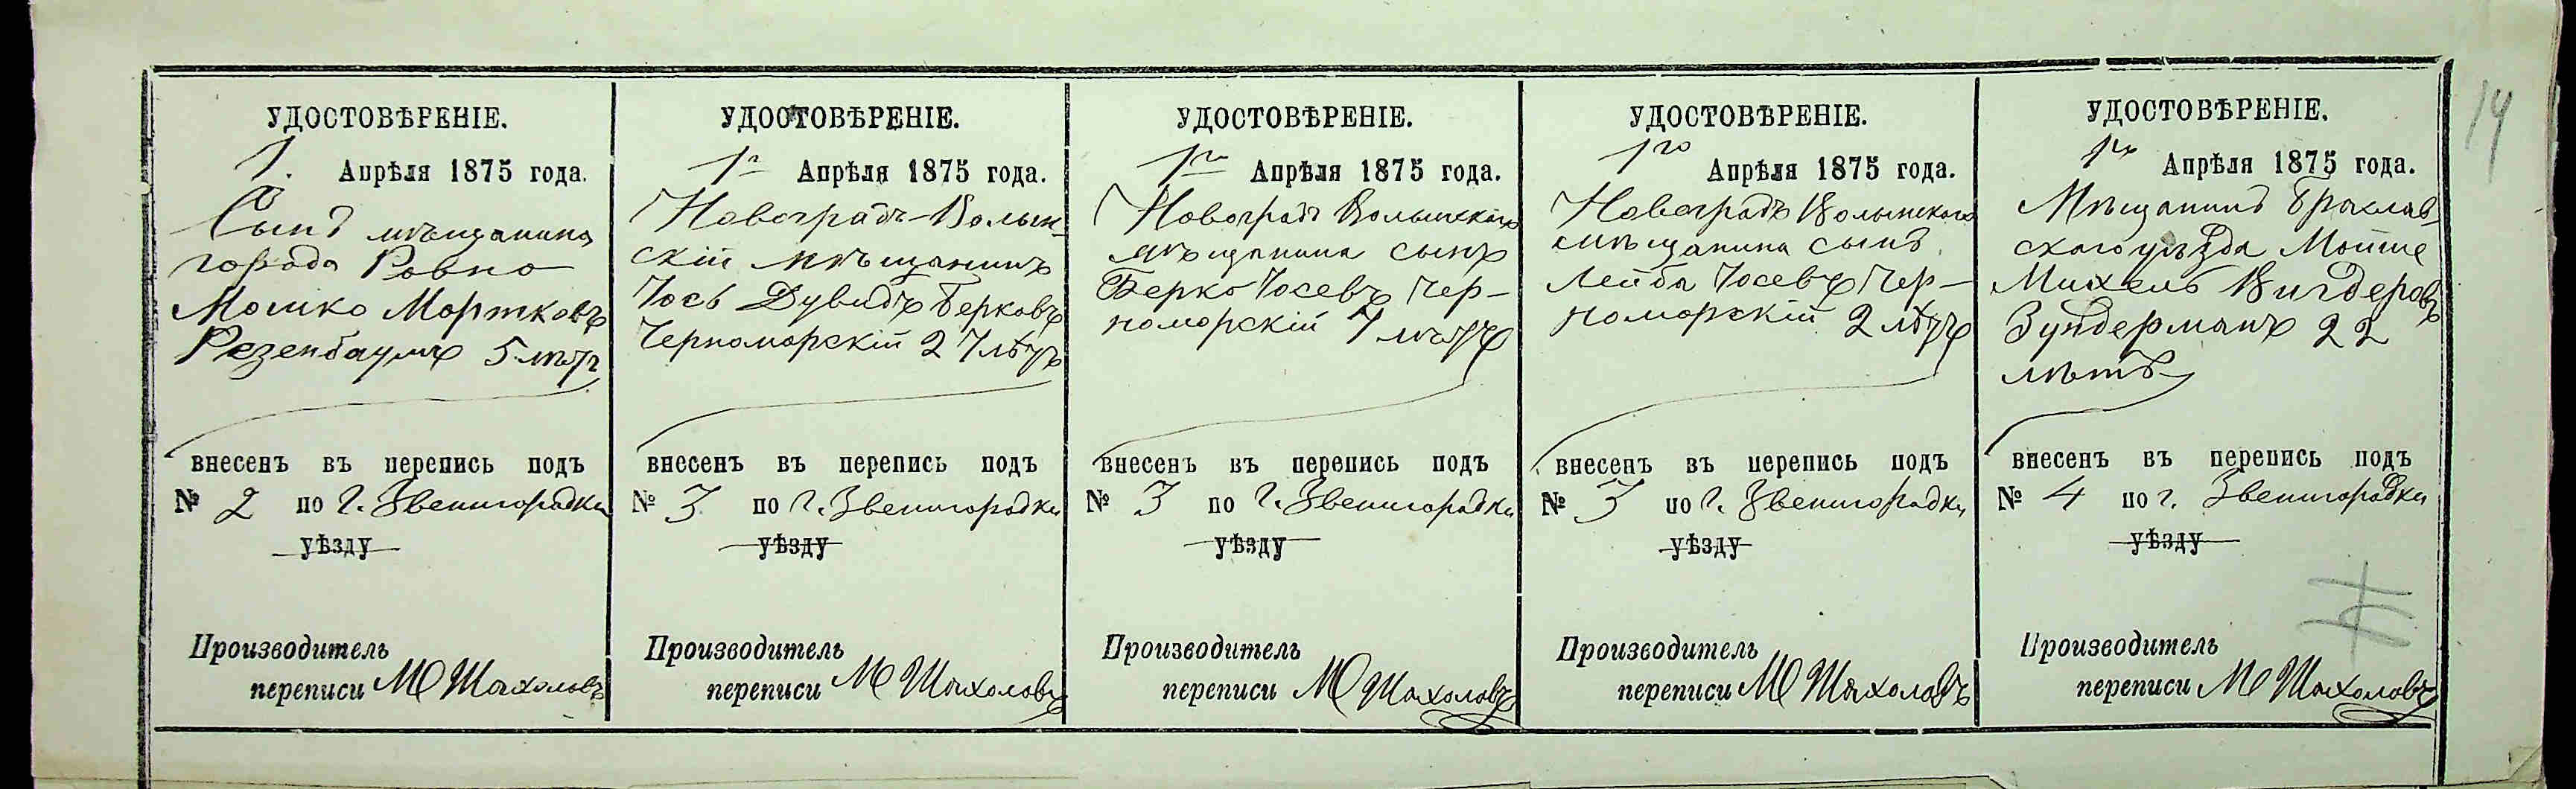 14
УДОСТОВѢРЕНІЕ.
1. Апрѣля 1875 года.
Сынъ мѣщанина
города Ровно
Мошко Мортковъ
Резенбаумъ 5 лѣтъ
внесенъ въ перепись подъ
№ 2 по г. Звенигородки
уѣзду
Производитель
переписи М Шахоловъ
УДОСТОВѢРЕНІЕ.
1г Апрѣля 1875 года.
Новоградъ-Волын-
скій мѣщанинъ
Іось Дувидъ Берковъ
Черноморскій 27 лѣтъ
внесенъ въ перепись подъ
№ 3 по г. Звенигородки
уѣзду
Производитель
переписи М Шахоловъ
УДОСТОВѢРЕНІЕ.
1го Апрѣля 1875 года.
Новоградъ Волынскаго
мѣщанина сынъ
Берко Іосевъ Чер-
номорскій 7 лѣтъ
внесенъ въ перепись подъ
№ 3 по г. Звенигородки
уѣзду
Производитель
переписи М Шахоловъ
УДОСТОВѢРЕНІЕ.
1го Апрѣля 1875 года.
Новоградъ Волынского
мѣщанина сынъ
Лейба Іосевъ Чер-
номорскій 2 лѣтъ
внесенъ въ перепись подъ
№ 3 по г. Звенигородки
уѣзду
Производитель
переписи М Шахоловъ
УДОСТОВѢРЕНІЕ.
1го Апрѣля 1875 года.
Мѣщанинъ Брацлав-
скаго уѣзда Мошше
Михель Вигдеровъ
Зундерманъ 22
лѣтъ
внесенъ въ перепись подъ
№ 4 по г. Звенигородки
уѣзду
Производитель
переписи М Шахоловъ